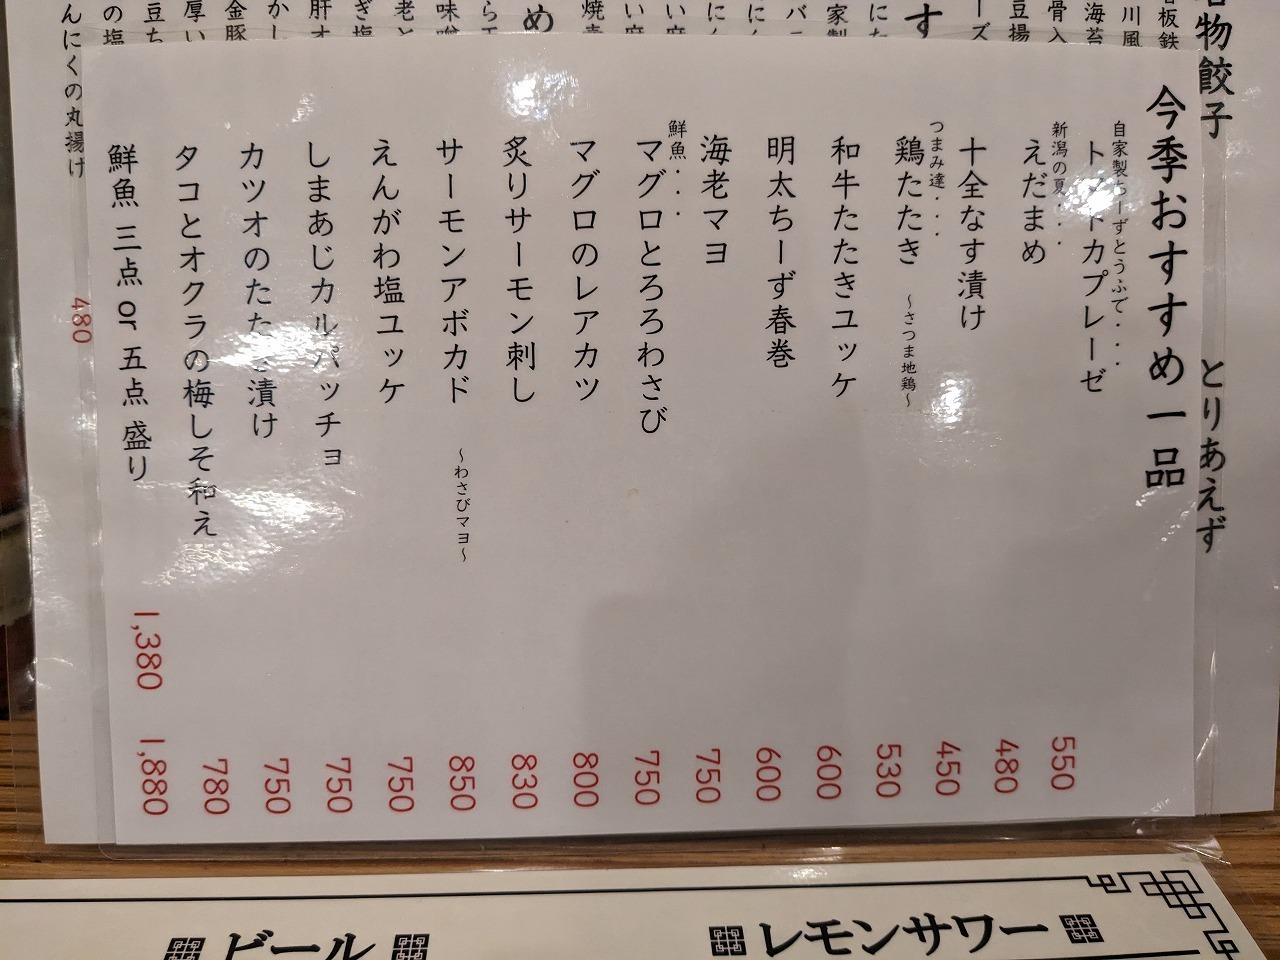 名物餃子
とりあえず
今季おすすめ一品
自家製ちーずとうふで・・・
トマトカプレーゼ
550
新潟の夏・・・
えだまめ
480
十全なす漬け
450
つまみ達・・・
鶏たたき ～さつま地鶏～
530
和牛たたきユッケ
600
明太ちーず春巻
600
海老マヨ
750
鮮魚・・・
マグロとろろわさび
750
マグロのレアカツ
800
炙りサーモン刺し
830
サーモンアボカド ～わさびマヨ～
850
えんがわ塩ユッケ
750
しまあじカルパッチョ
750
カツオのたたき漬け
750
タコとオクラの梅しそ和え
780
鮮魚 三点 or 五点 盛り
1,380 1,880
んにくの丸揚け
480
レモンサワー
ビール